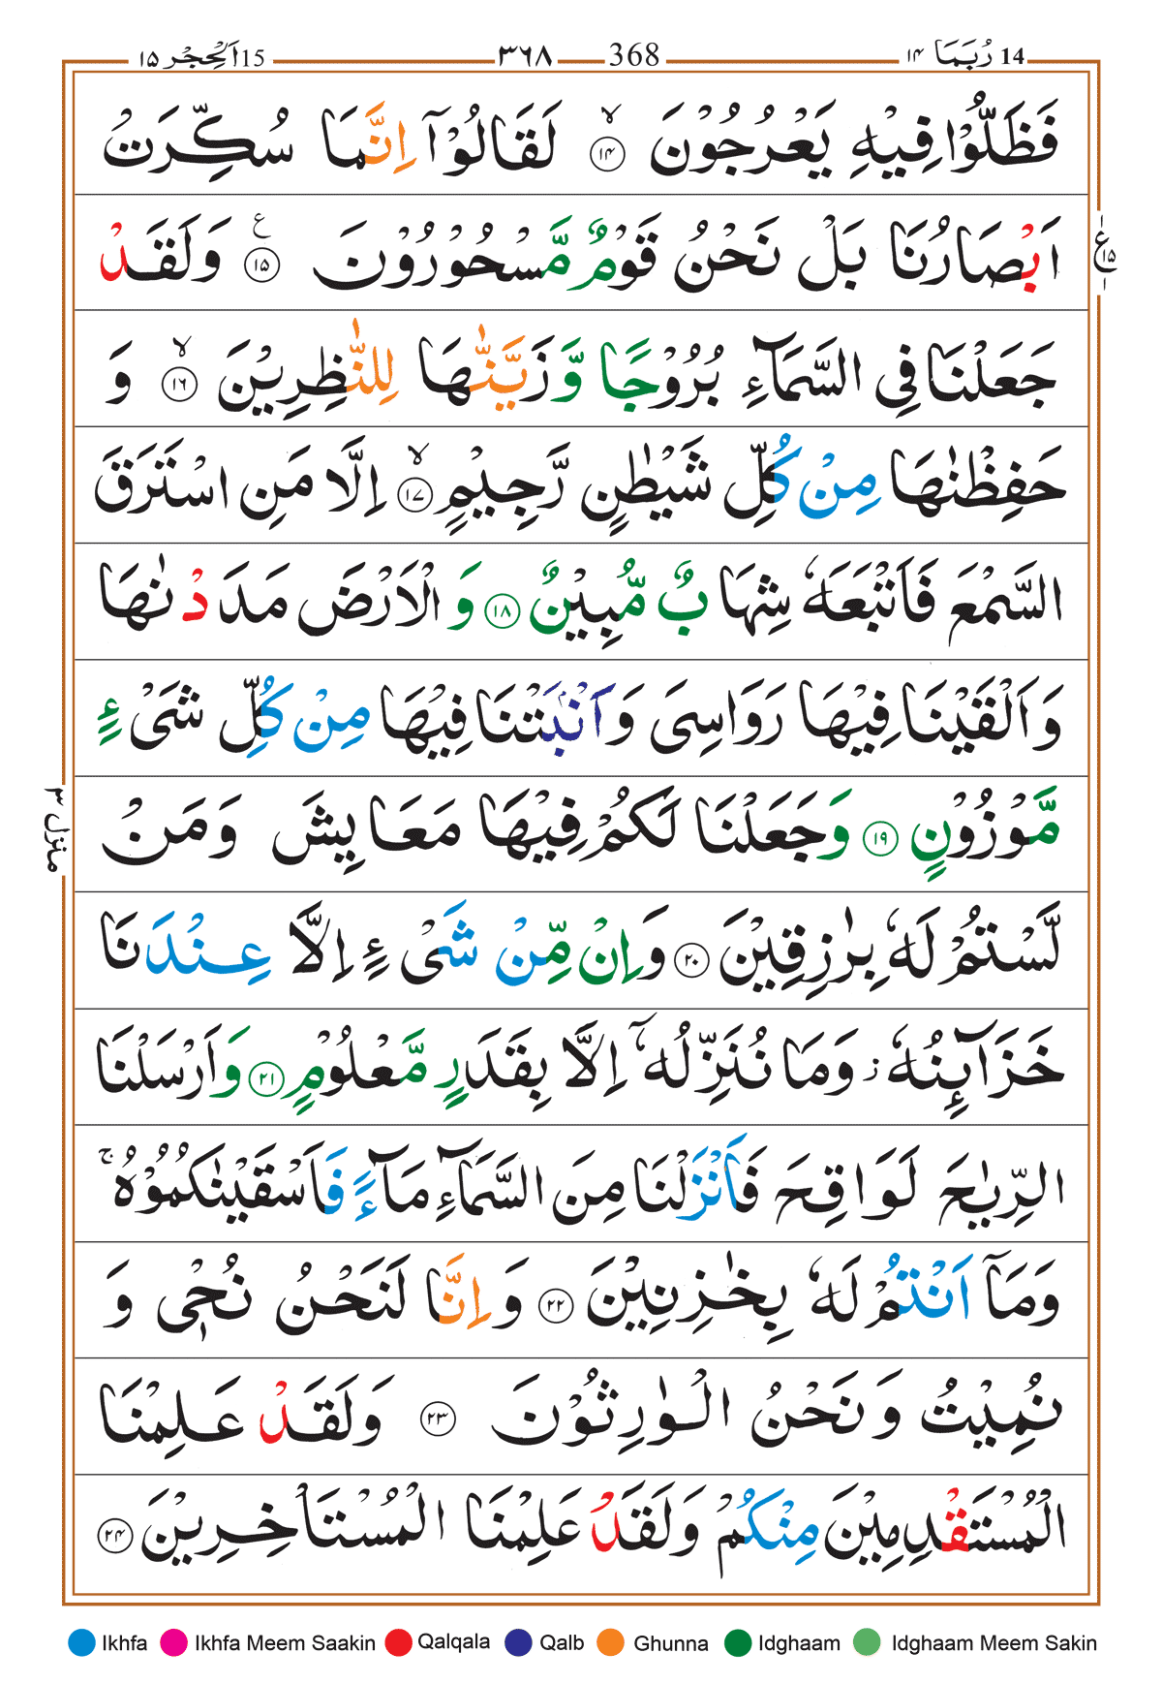 14 رُبَمَا ۱۴ 368 ۳۶۸ 15 اَلْحِجْر ۱۵
فَظَلُّوْا فِيْهِ يَعْرُجُوْنَ ۙ‏ ﴿۱۴﴾ لَقَالُوْۤا اِنَّمَا سُكِّرَتْ
اَبْصَارُنَا بَلْ نَحْنُ قَوْمٌ مَّسْحُوْرُوْنَ ﴿۱۵﴾ ع وَلَقَدْ
ع ۱۵ ۱
جَعَلْنَا فِى السَّمَآءِ بُرُوْجًا وَّ زَيَّنّٰهَا لِلنّٰظِرِيْنَ ۙ‏ ﴿۱۶﴾ وَ
حَفِظْنٰهَا مِنْ كُلِّ شَيْطٰنٍ رَّجِيْمٍ ۙ‏ ﴿۱۷﴾ اِلَّا مَنِ اسْتَرَقَ
السَّمْعَ فَاَتْبَعَهٗ شِهَابٌ مُّبِيْنٌ ﴿۱۸﴾ وَ الْاَرْضَ مَدَدْنٰهَا
وَاَلْقَيْنَا فِيْهَا رَوَاسِىَ وَاَنْۢبَتْنَا فِيْهَا مِنْ كُلِّ شَىْءٍ
مَّوْزُوْنٍ ﴿۱۹﴾ وَجَعَلْنَا لَكُمْ فِيْهَا مَعَايِشَ وَمَنْ
منزل ۳
لَّسْتُمْ لَهٗ بِرٰزِقِيْنَ ﴿۲۰﴾ وَاِنْ مِّنْ شَىْءٍ اِلَّا عِنْدَنَا
خَزَآئِنُهٗ ز وَمَا نُنَزِّلُهٗۤ اِلَّا بِقَدَرٍ مَّعْلُوْمٍ ﴿۲۱﴾ وَاَرْسَلْنَا
الرِّيٰحَ لَوَاقِحَ فَاَنْزَلْنَا مِنَ السَّمَآءِ مَآءً فَاَسْقَيْنٰكُمُوْهُ ۚ
وَمَاۤ اَنْتُمْ لَهٗ بِخٰزِنِيْنَ ﴿۲۲﴾ وَ اِنَّا لَنَحْنُ نُحْىٖ وَ
نُمِيْتُ وَنَحْنُ الْوٰرِثُوْنَ ﴿۲۳﴾ وَلَقَدْ عَلِمْنَا
الْمُسْتَقْدِمِيْنَ مِنْكُمْ وَلَقَدْ عَلِمْنَا الْمُسْتَاْخِرِيْنَ ﴿۲۴﴾
Ikhfa Ikhfa Meem Saakin Qalqala Qalb Ghunna Idghaam Idghaam Meem Sakin